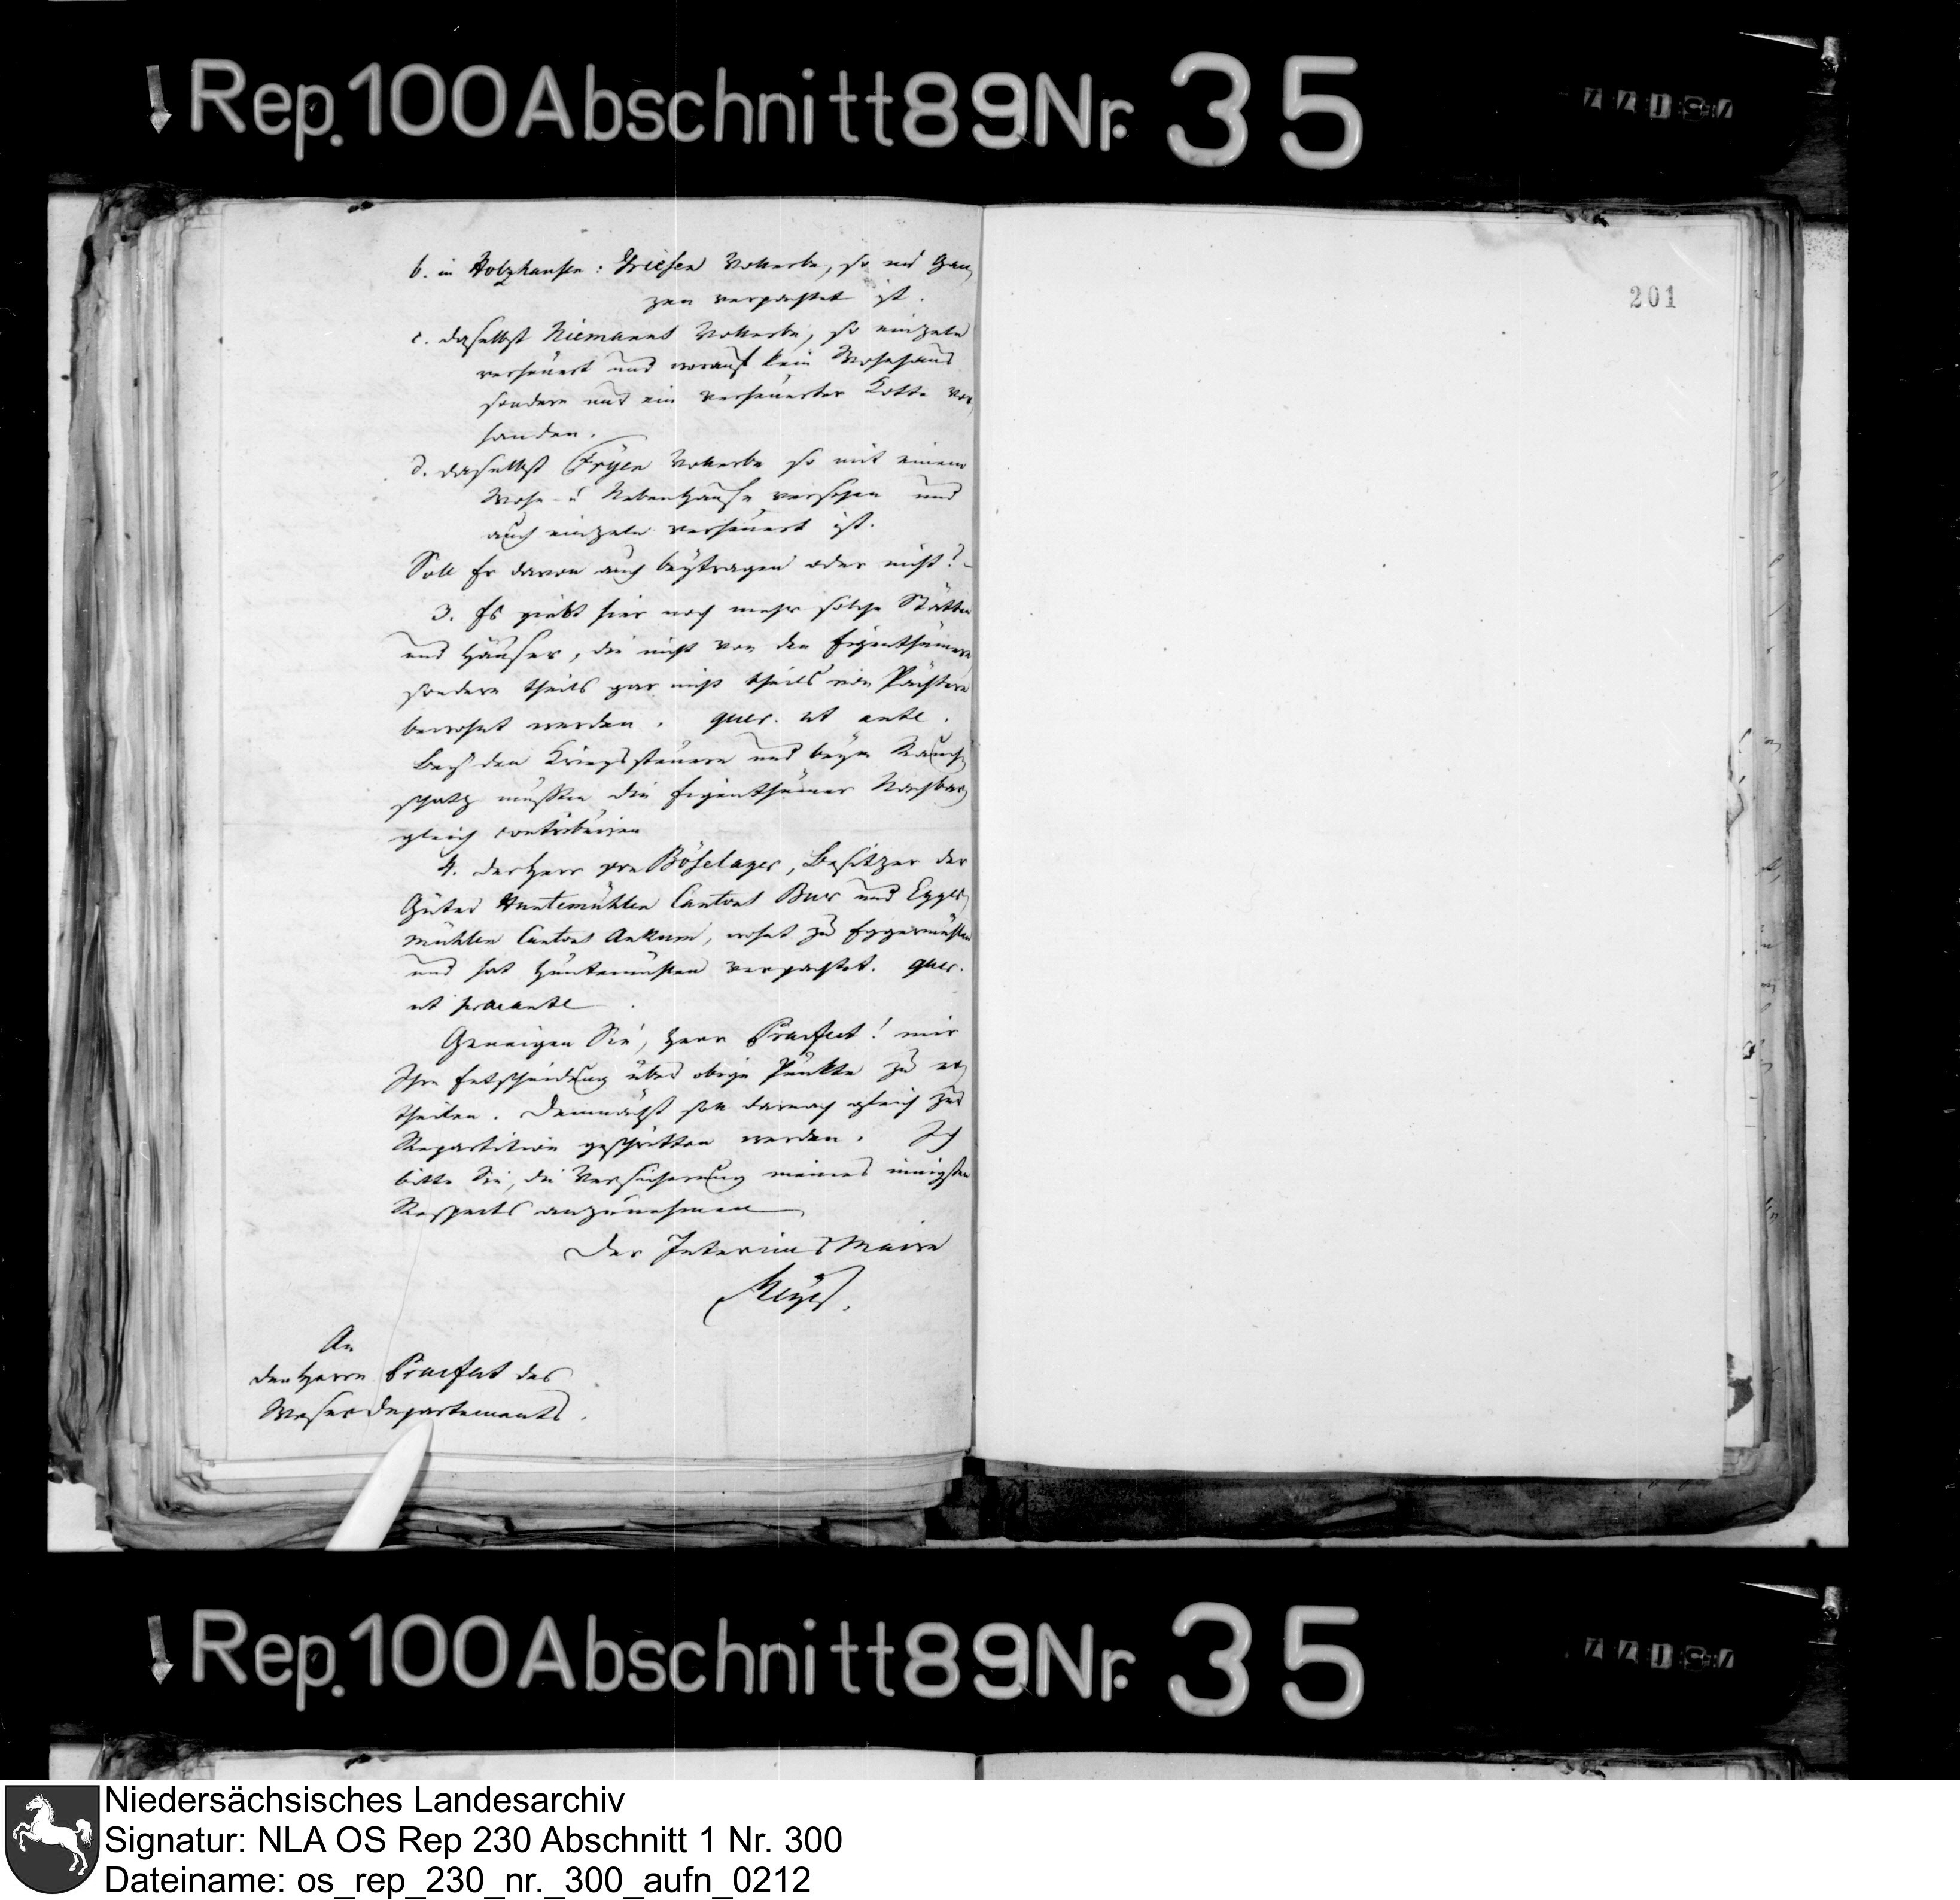 Rep. 100 Abschnitt 89 Nr. 35
b. in Holzhausen: Friesen Vollerbe, so im Gan,
zen verpachtet ist.
c. daselbst Niemanns Vollerbe, so einzeln
verheuert und worauf kein Wohnhaus
sondern nur ein verheuerter Kotte vor,
handen.
d. daselbst Vollerbe so mit einem
Wohn- u Nebenhause versehen und
auch einzeln verheuert ist.
Soll Er davon auch beytragen oder nicht? -
3. Es giebt hier noch mehr solche Stätten
und Häuser, die nicht von den Eigenthümern,
sondern theils gar nicht theils von Pächtern
bewohnt werden. quer. ut ante.
Bey den Kriegssteuern und beym Rauch,
schatz mußten die Eigenthümer Nachbar,
gleich contribuiren
4. der Herr von Böselager, Besitzer der
Güter Huntemühlen Cantons Buer und Egger,
mühlen Cantons Ankum, wohnt zu Eggermühlen
und hat Huntemühlen verpachtet. quer.
ut ante
Geneigen Sie, Herr Praefect! mir
Ihre Entscheidung über obige Punkte zu er,
theilen. Demnächst soll darnach gleich zur
Repartition geschritten werden. Ich
bitte Sie, die Versicherung meines innigsten
Respects anzunehmen
Der Interims Maire
Meyer.
An
den Herrn Praefect des
Weserdepartements.
201
Rep. 100 Abschnitt 89 Nr. 35
Niedersächsisches Landesarchiv
Signatur: NLA OS Rep 230 Abschnitt 1 Nr. 300
Dateiname: os_rep_230_nr._300_aufn_0212